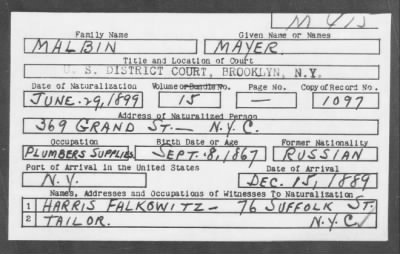 M 415
Family Name Given Name or Names
MALBIN MAYER.
Title and Location of Court
U. S. DISTRICT COURT, BROOKLYN, N.Y.
Date of Naturalization Volume or Bundle No. Page No. Copy of Record No.
JUNE-29,1899 15 — 1097
Address of Naturalized Person
369 GRAND ST.— N.Y.C.
Occupation Birth Date or Age Former Nationality
PLUMBERS SUPPLIES SEPT.8,1867 RUSSIAN
Port of Arrival in the United States Date of Arrival
N.Y. DEC.15,1889
Names, Addresses and Occupations of Witnesses To Naturalization
1 HARRIS FALKOWITZ— 76 SUFFOLK ST.
2 TAILOR. N.Y.C.